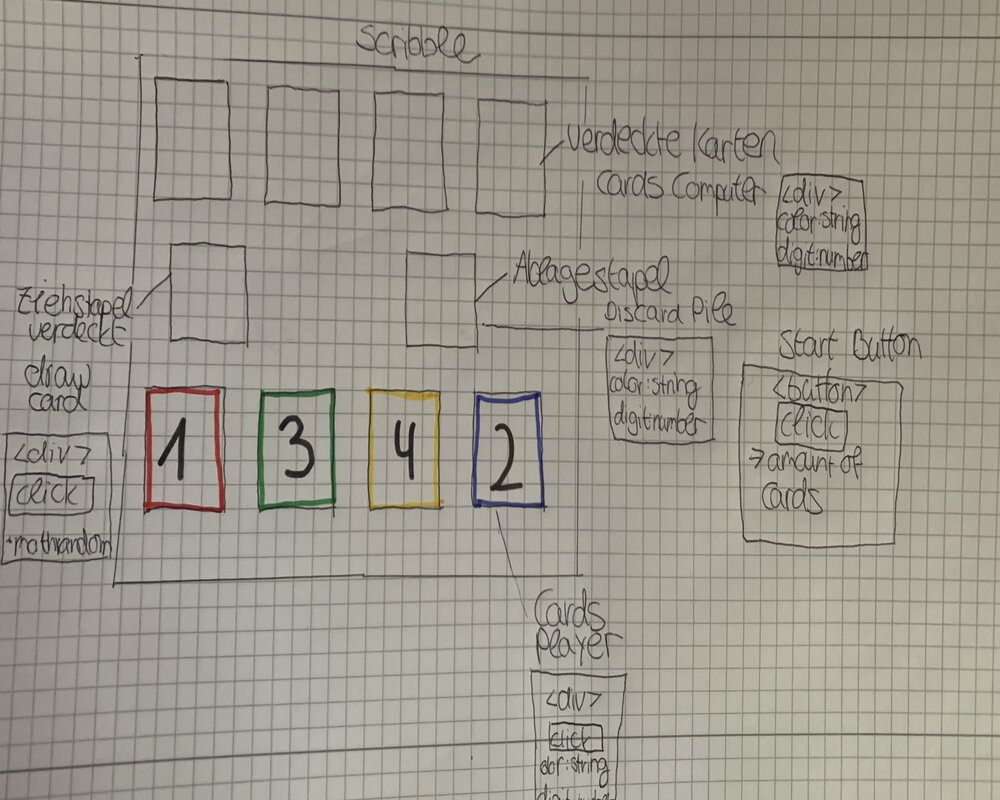 Scribble
Verdeckte Karten
Cards Computer
<div>
color:string
digit:number
Ziehstapel
verdeckt
draw
card
<div>
click
mathrandom
Ablagestapel
Discard Pile
<div>
color:string
digit:number
Start Button
<button>
click
→ amount of
cards
1 3 4 2
Cards
Player
<div>
click
color:string
digit:number